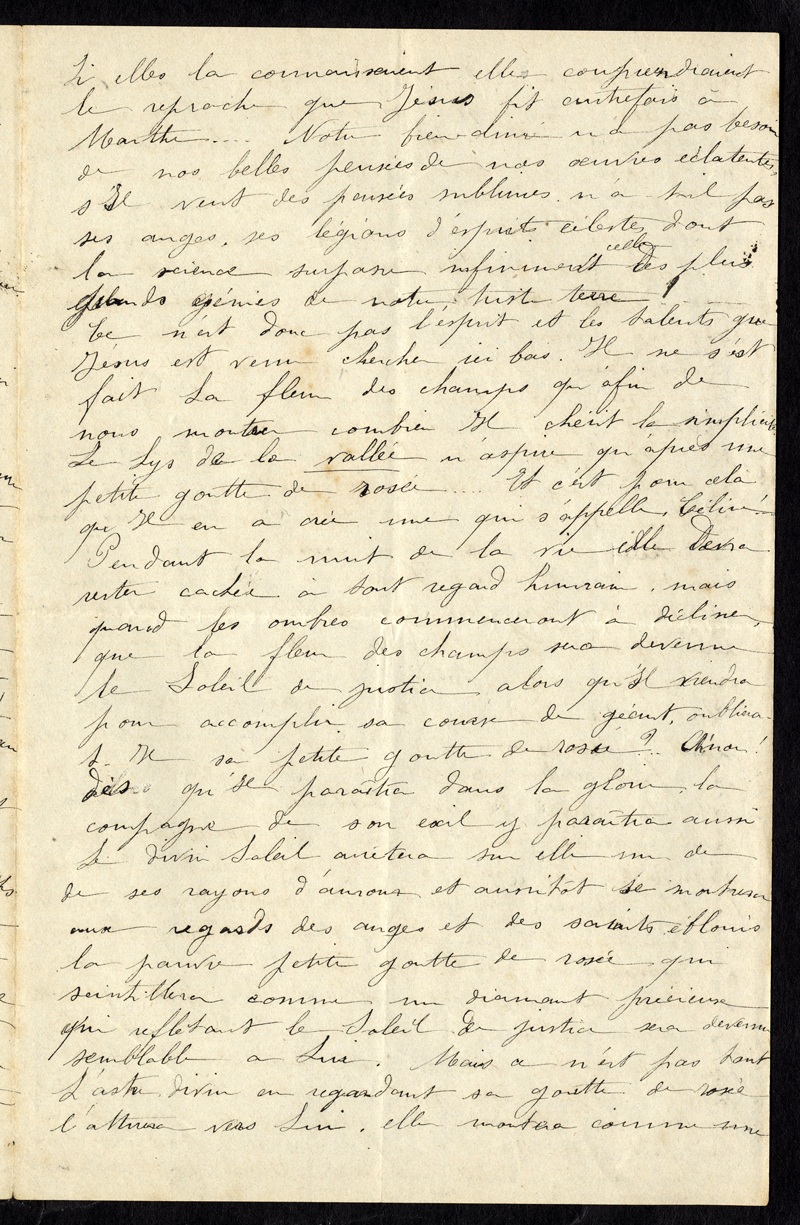 Si elles la connaissaient elles comprendraient
le reproche que Jésus fit autrefois à
Marthe.... Notre bien-aimé n'a pas besoin
de nos belles pensées de nos œuvres éclatantes,
s'Il veut des pensées sublimes, n'a t'il pas
ses anges, ses légions d'esprits célestes dont
la science surpasse infiniment celle des plus
grands génies de notre triste terre !
Ce n'est donc pas l'esprit et les talents que
Jésus est venu chercher ici bas. Il ne s'est
fait la fleur des champs qu'afin de
nous montrer combien Il chérit la simplicité
Le Lys de la vallée n'aspire qu'après une
petite goutte de rosée.... Et c'est pour cela
qu'Il en a créé une qui s'appelle Céline!...
Pendant la nuit de la vie elle devra
rester cachée à tout regard humain, mais
quand les ombres commenceront à décliner,
que la fleur des champs sera devenue
le Soleil de justice alors qu'Il viendra
pour accomplir sa course de géant, oubliera-
t-Il sa petite goutte de rosée?.. Oh non!
dès qu'Il paraîtra dans la gloire, la
compagne de son exil y paraîtra aussi
Le divin Soleil arrêtera sur elle un de
de ses rayons d'amour et aussitôt se montrera
aux regards des anges et des saints éblouis
la pauvre petite goutte de rosée qui
scintillera comme un diamant précieux
qui reflétant le Soleil de justice sera devenu
semblable à Lui. Mais ce n'est pas tout
L'astre divin en regardant sa goutte de rosée
l'attirera vers Lui, elle montera comme une